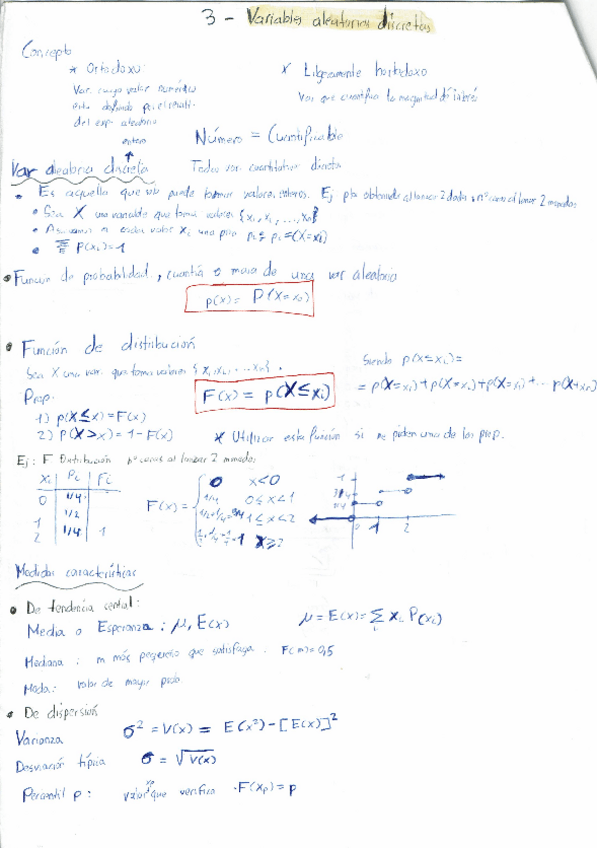 3 - Variables aleatorias discretas
Concepto
* Ortodoxo:
Var. cuyo valor numérico
está definido por el result.
del exp. aleatorio
* Ligeramente hortodoxo
Var que cuantifica la magnitud de interés
Número = Cuantificable
entero
Var aleatoria discreta
Todas var. cuantitativas discreta
• Es aquella que solo puede tomar valores enteros. Ej pto obtenido al lanzar 2 dados, nº caras al lanzar 2 monedas
• Sea X una variable que toma valores {x₁, x₂, ..., xₙ}
• a cada valor xᵢ una prob pᵢ; pᵢ = (X=xᵢ)
• Σ P(xᵢ)=1
• Función de probabilidad, cuantía o masa de una var aleatoria
p(x) = P(X=xᵢ)
• Función de distribución
Sea X una var. que toma valores {x₁, x₂, ... xₙ}.
F(x) = p(X≤xᵢ)
Siendo p(x≤xᵢ)=
Prop.
1) p(X≤x)=F(x)
2) p(X>x)=1-F(x)
* Utilizar esta función si me piden una de las prop.
Ej: F Distribución nº caras al lanzar 2 monedas
xᵢ Pᵢ Fᵢ
0 1/4
1 1/2
2 1/4 1
F(x)=
0 x<0
1/4 0≤x<1
1/2+1/4=3/4 1≤x<2
1 x≥2
1
3/4
1/4
0 1 2
Medidas características
• De tendencia central:
Media o Esperanza: μ, E(x) μ=E(x)=Σ xᵢ P(xᵢ)
Mediana: m más pequeño que satisfaga. F(m)=0,5
Moda: valor de mayor prob
• De dispersión
Varianza σ²=V(x)= E(x²)-[E(x)]²
Desviación típica σ=√V(x)
Percentil p: valor xp que verifica F(xp)=p